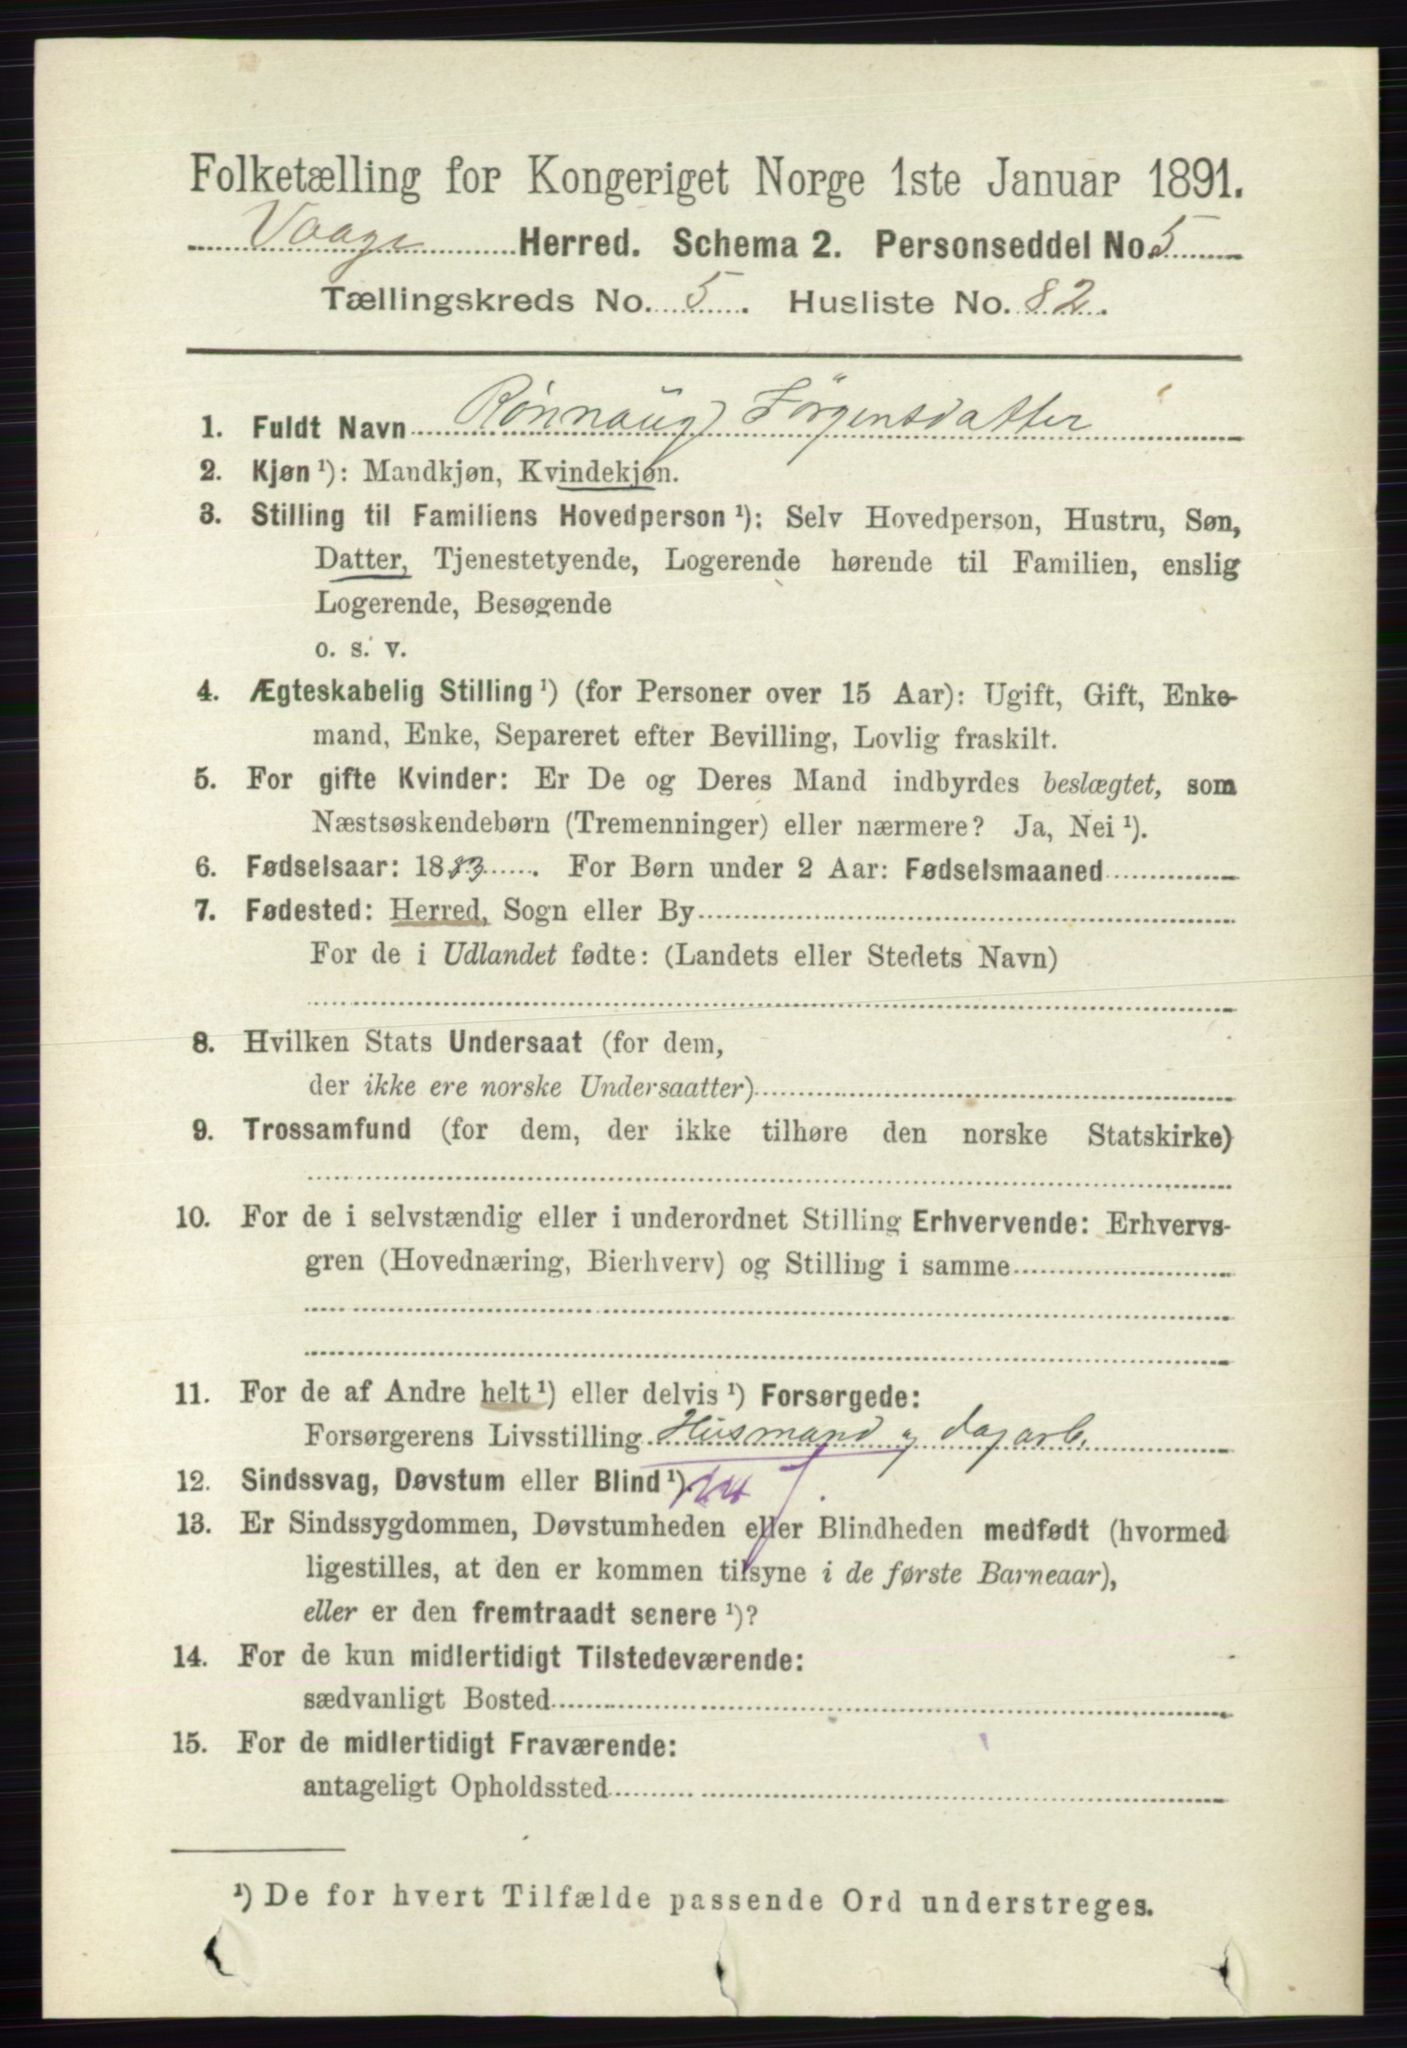 Folketælling for Kongeriget Norge 1ste Januar 1891.
Vaage Herred. Schema 2. Personseddel No. 5
Tællingskreds No. 5. Husliste No. 82.
1. Fuldt Navn Rønnaug Jörgensdatter
2. Kjøn ¹): Mandkjøn, Kvindekjøn.
3. Stilling til Familiens Hovedperson ¹): Selv Hovedperson, Hustru, Søn,
Datter, Tjenestetyende, Logerende hørende til Familien, enslig
Logerende, Besøgende
o. s. v.
4. Ægteskabelig Stilling ¹) (for Personer over 15 Aar): Ugift, Gift, Enke-
mand, Enke, Separeret efter Bevilling, Lovlig fraskilt.
5. For gifte Kvinder: Er De og Deres Mand indbyrdes beslægtet, som
Næstsøskendebørn (Tremenninger) eller nærmere? Ja, Nei ¹).
6. Fødselsaar: 1883. For Børn under 2 Aar: Fødselsmaaned
7. Fødested: Herred, Sogn eller By
For de i Udlandet fødte: (Landets eller Stedets Navn)
8. Hvilken Stats Undersaat (for dem,
der ikke ere norske Undersaatter)
9. Trossamfund (for dem, der ikke tilhøre den norske Statskirke)
10. For de i selvstændig eller i underordnet Stilling Erhvervende: Erhvervs-
gren (Hovednæring, Bierhverv) og Stilling i samme
11. For de af Andre helt ¹) eller delvis ¹) Forsørgede:
Forsørgerens Livsstilling Husmand og dagarb.
12. Sindssvag, Døvstum eller Blind ¹).
13. Er Sindssygdommen, Døvstumheden eller Blindheden medfødt (hvormed
ligestilles, at den er kommen tilsyne i de første Barneaar),
eller er den fremtraadt senere ¹)?
14. For de kun midlertidigt Tilstedeværende:
sædvanligt Bosted
15. For de midlertidigt Fraværende:
antageligt Opholdssted
¹) De for hvert Tilfælde passende Ord understreges.